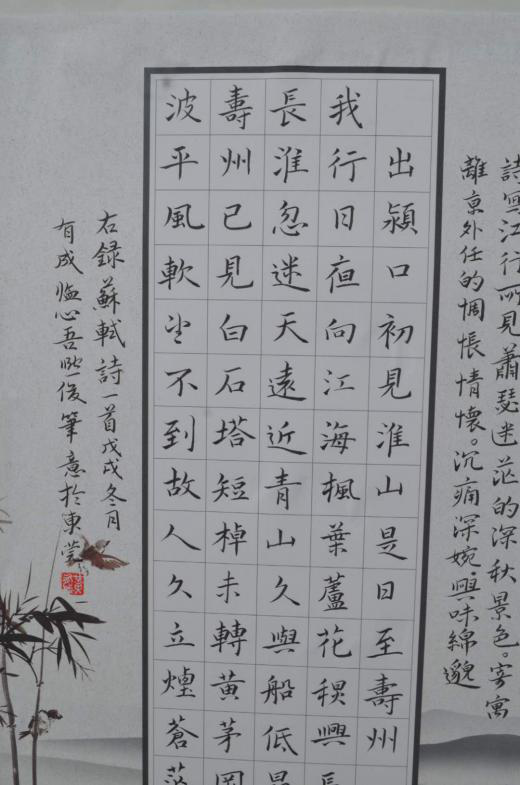 詩寫江行所見蕭瑟迷茫的深秋景色。寄寓
離京外任的惆悵情懷。沉痛深婉，興味綿邈
出潁口初見淮山是日至壽州
我行日夜向江海楓葉蘆花秋興長
長淮忽迷天遠近青山久與船低昂
壽州已見白石塔短棹未轉黃茅岡
波平風軟望不到故人久立煙蒼茫
右録蘇軾詩一首戊戌冬月
有成臨心吾熙俊筆意於東莞